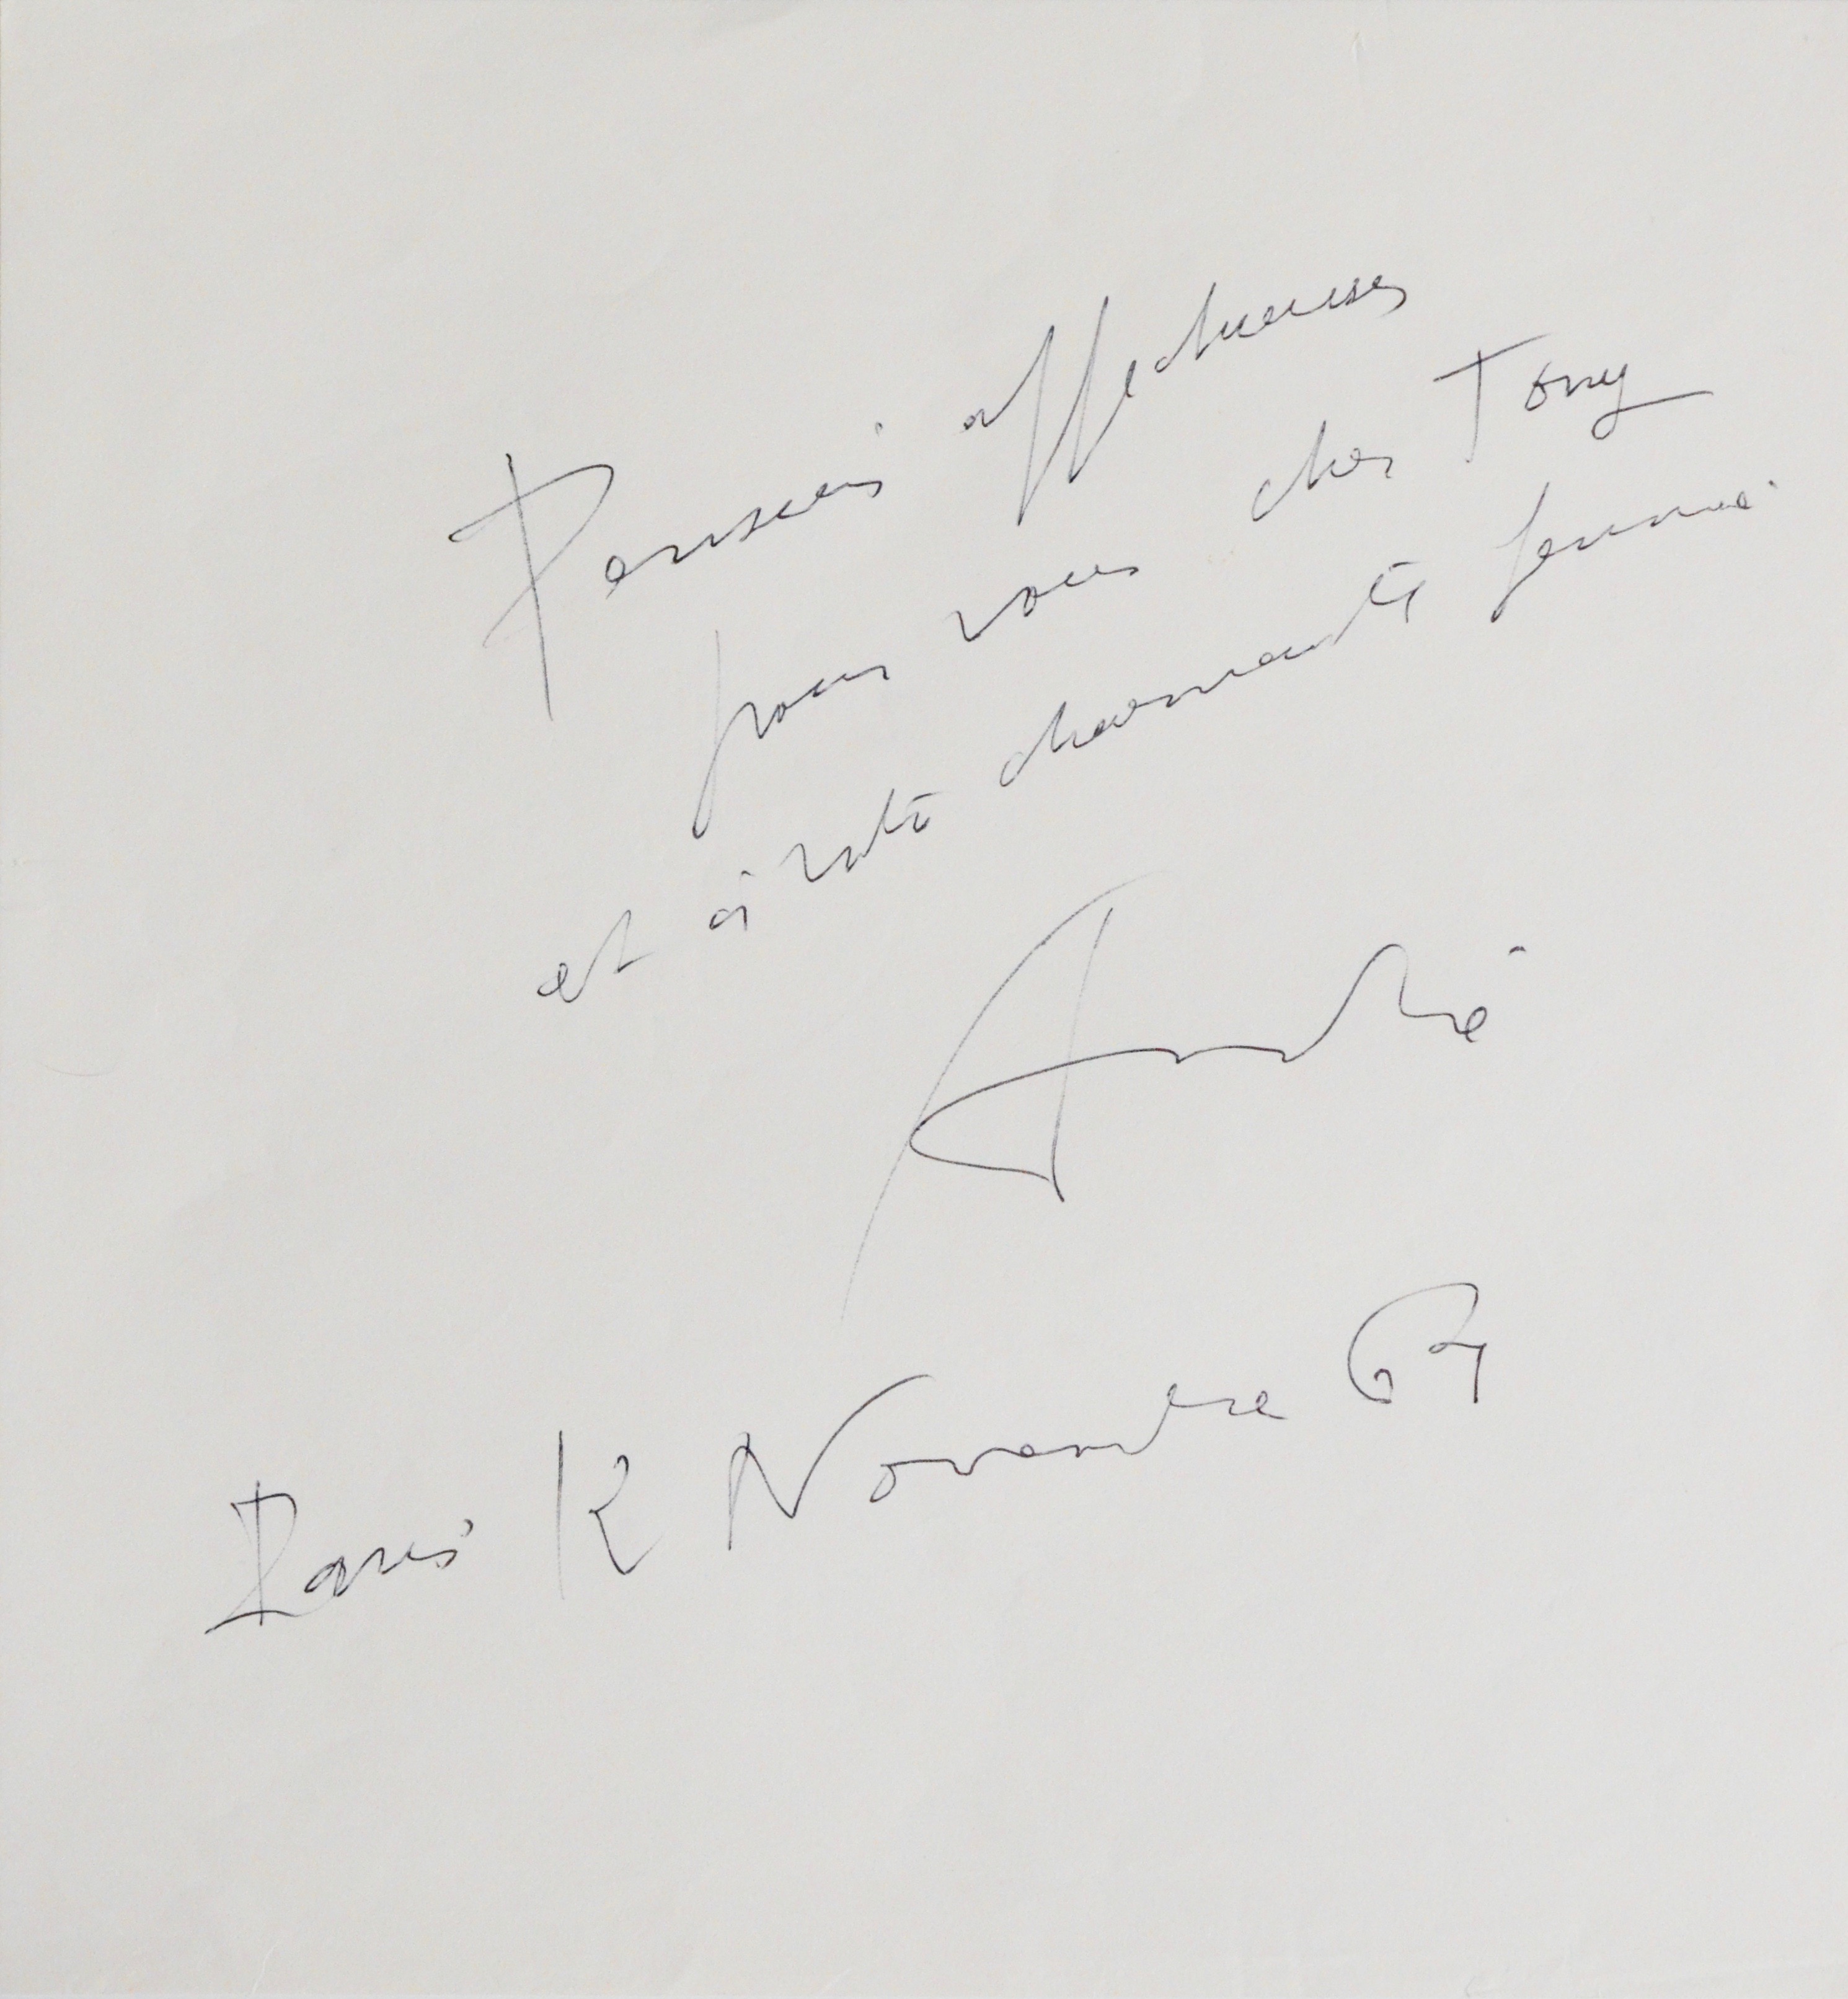 Pensées affectueuses
pour vous cher Tony
et à votre charmante femme.
André
Paris 12 Novembre 67